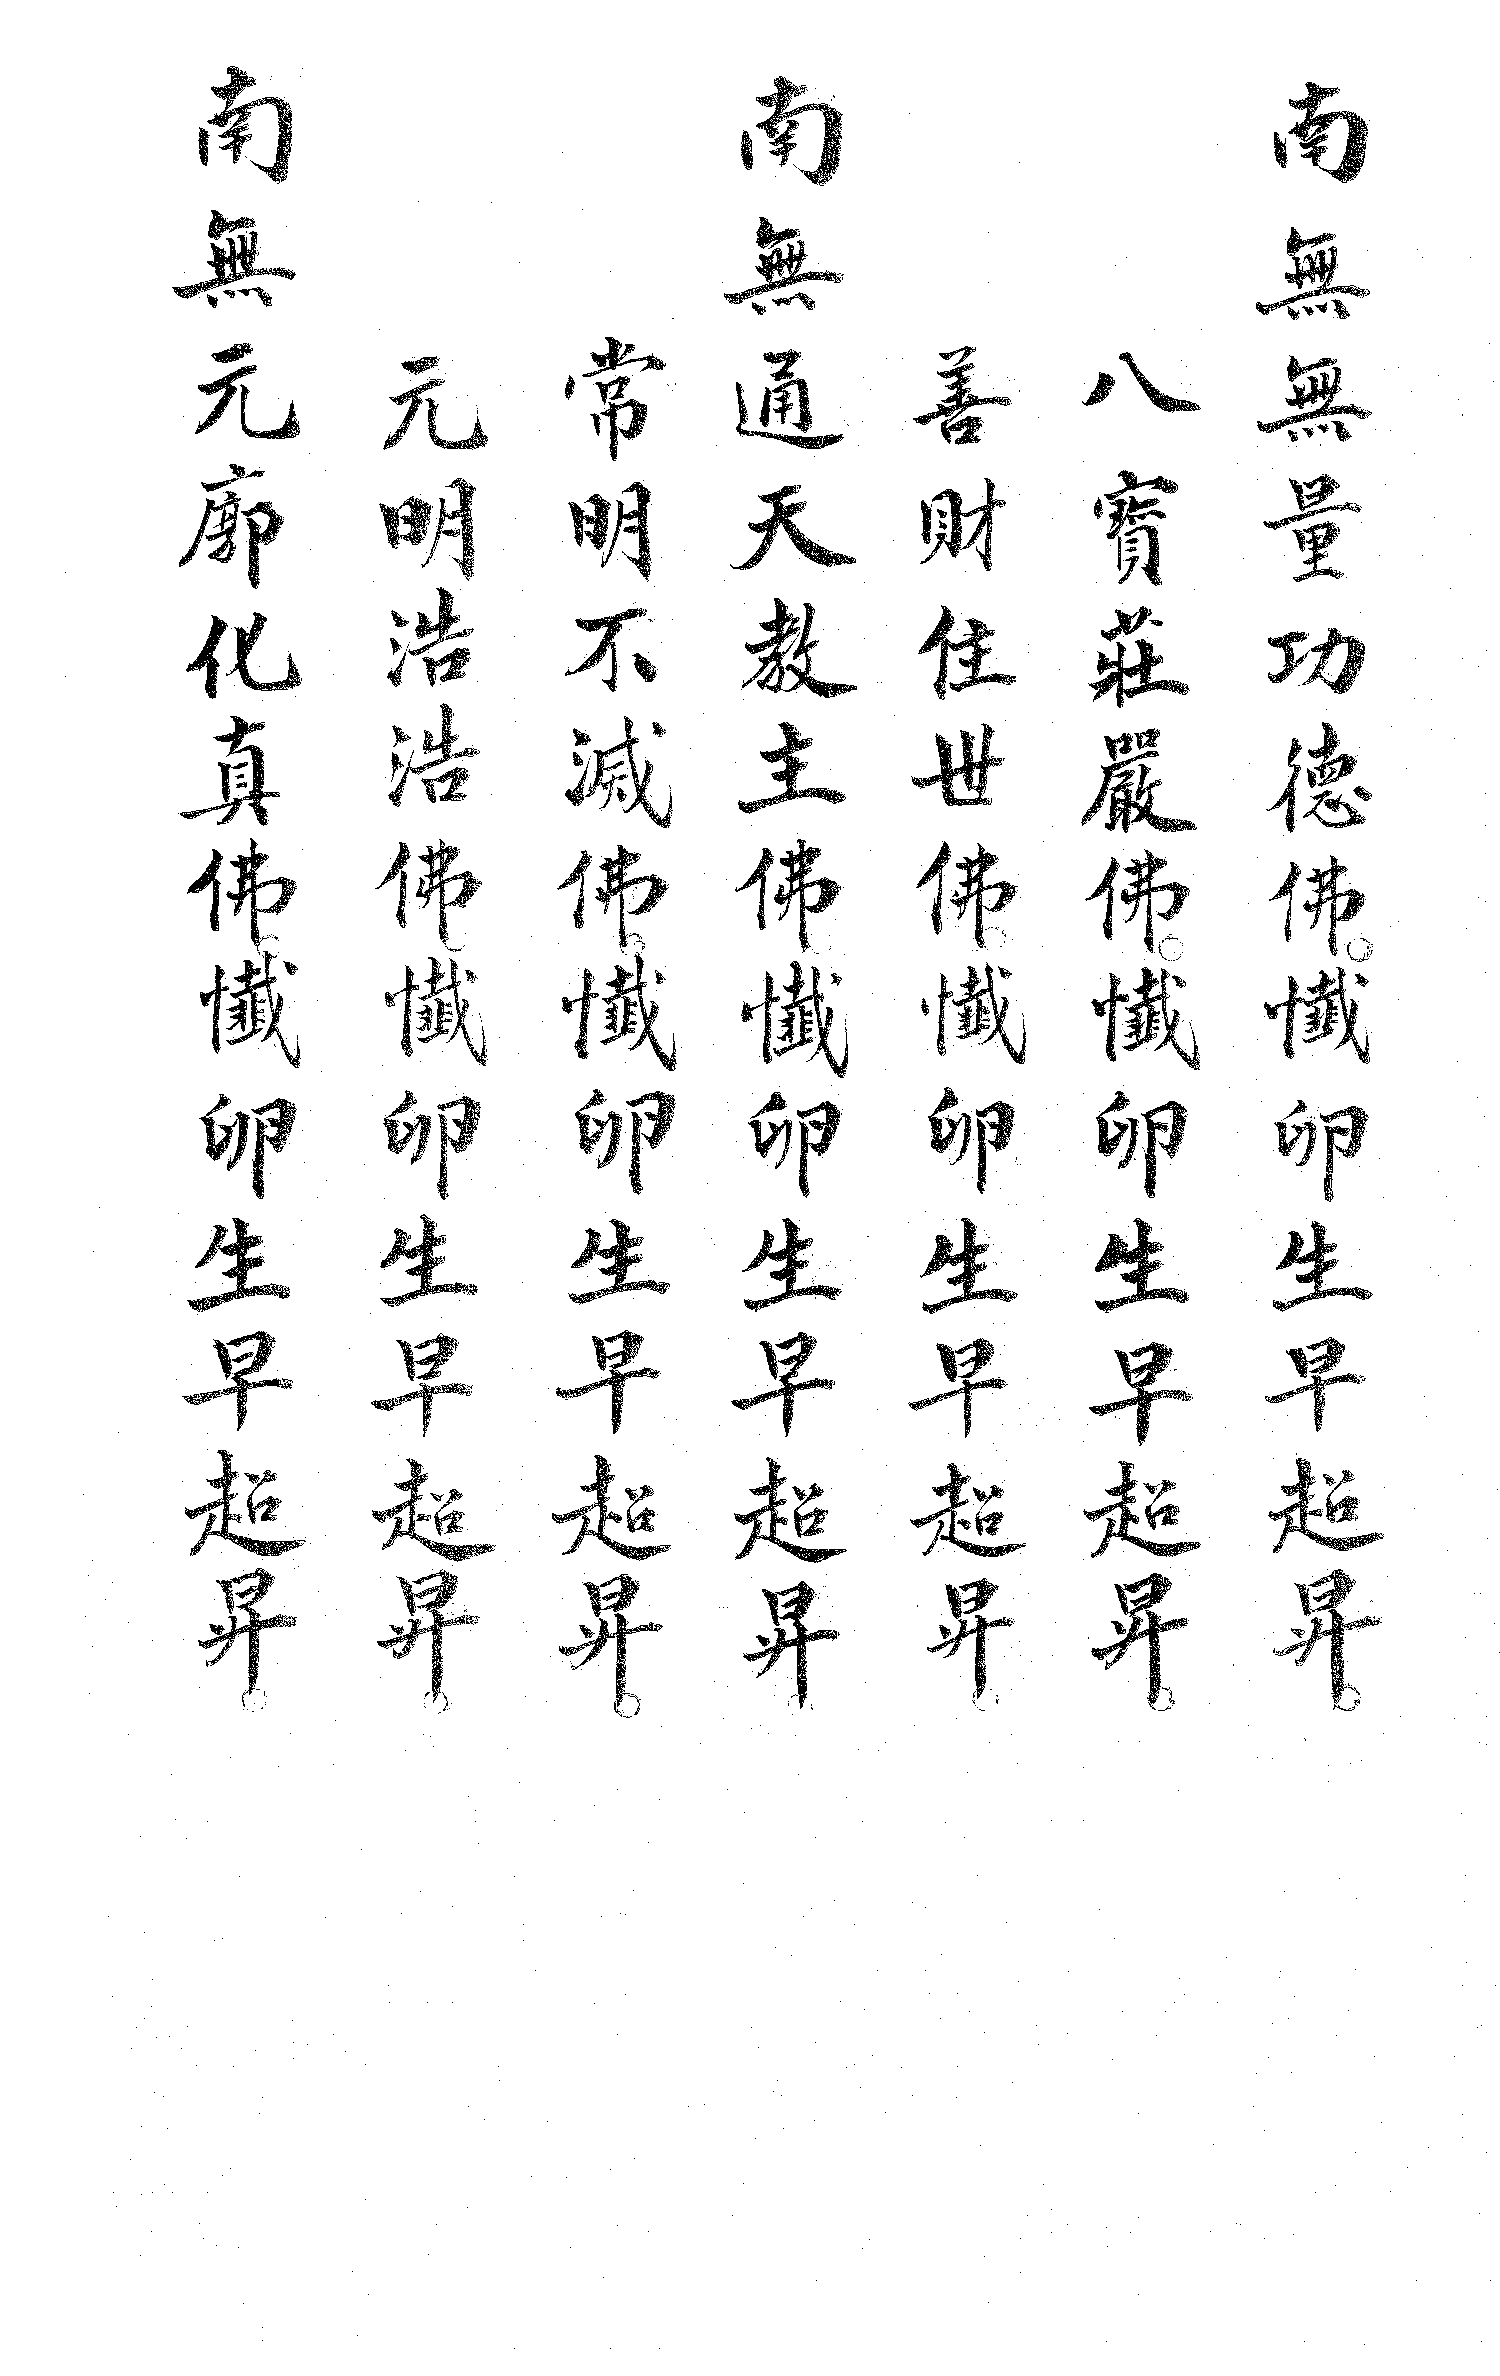 南無無量功德佛。懺卵生早超昇。
八寶莊嚴佛。懺卵生早超昇。
善財住世佛。懺卵生早超昇。
南無通天教主佛。懺卵生早超昇。
常明不滅佛。懺卵生早超昇。
元明浩浩佛。懺卵生早超昇。
南無元廓化真佛。懺卵生早超昇。